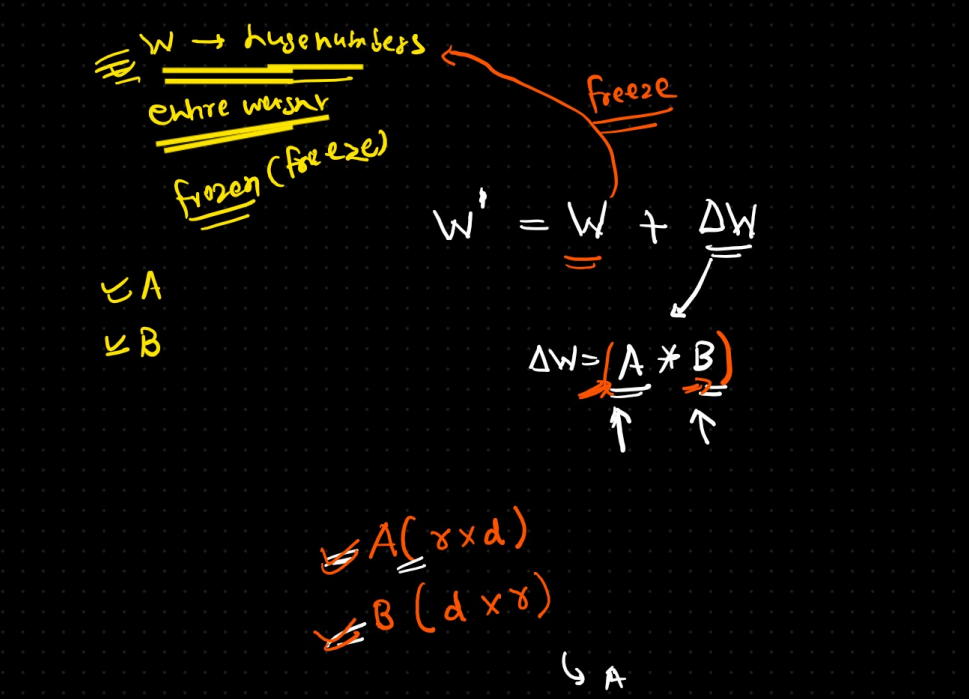 W → huge numbers
entire weight
frozen (freeze)
freeze
W' = W + ΔW
A
B
ΔW = (A * B)
A (r x d)
B (d x r)
↳ A